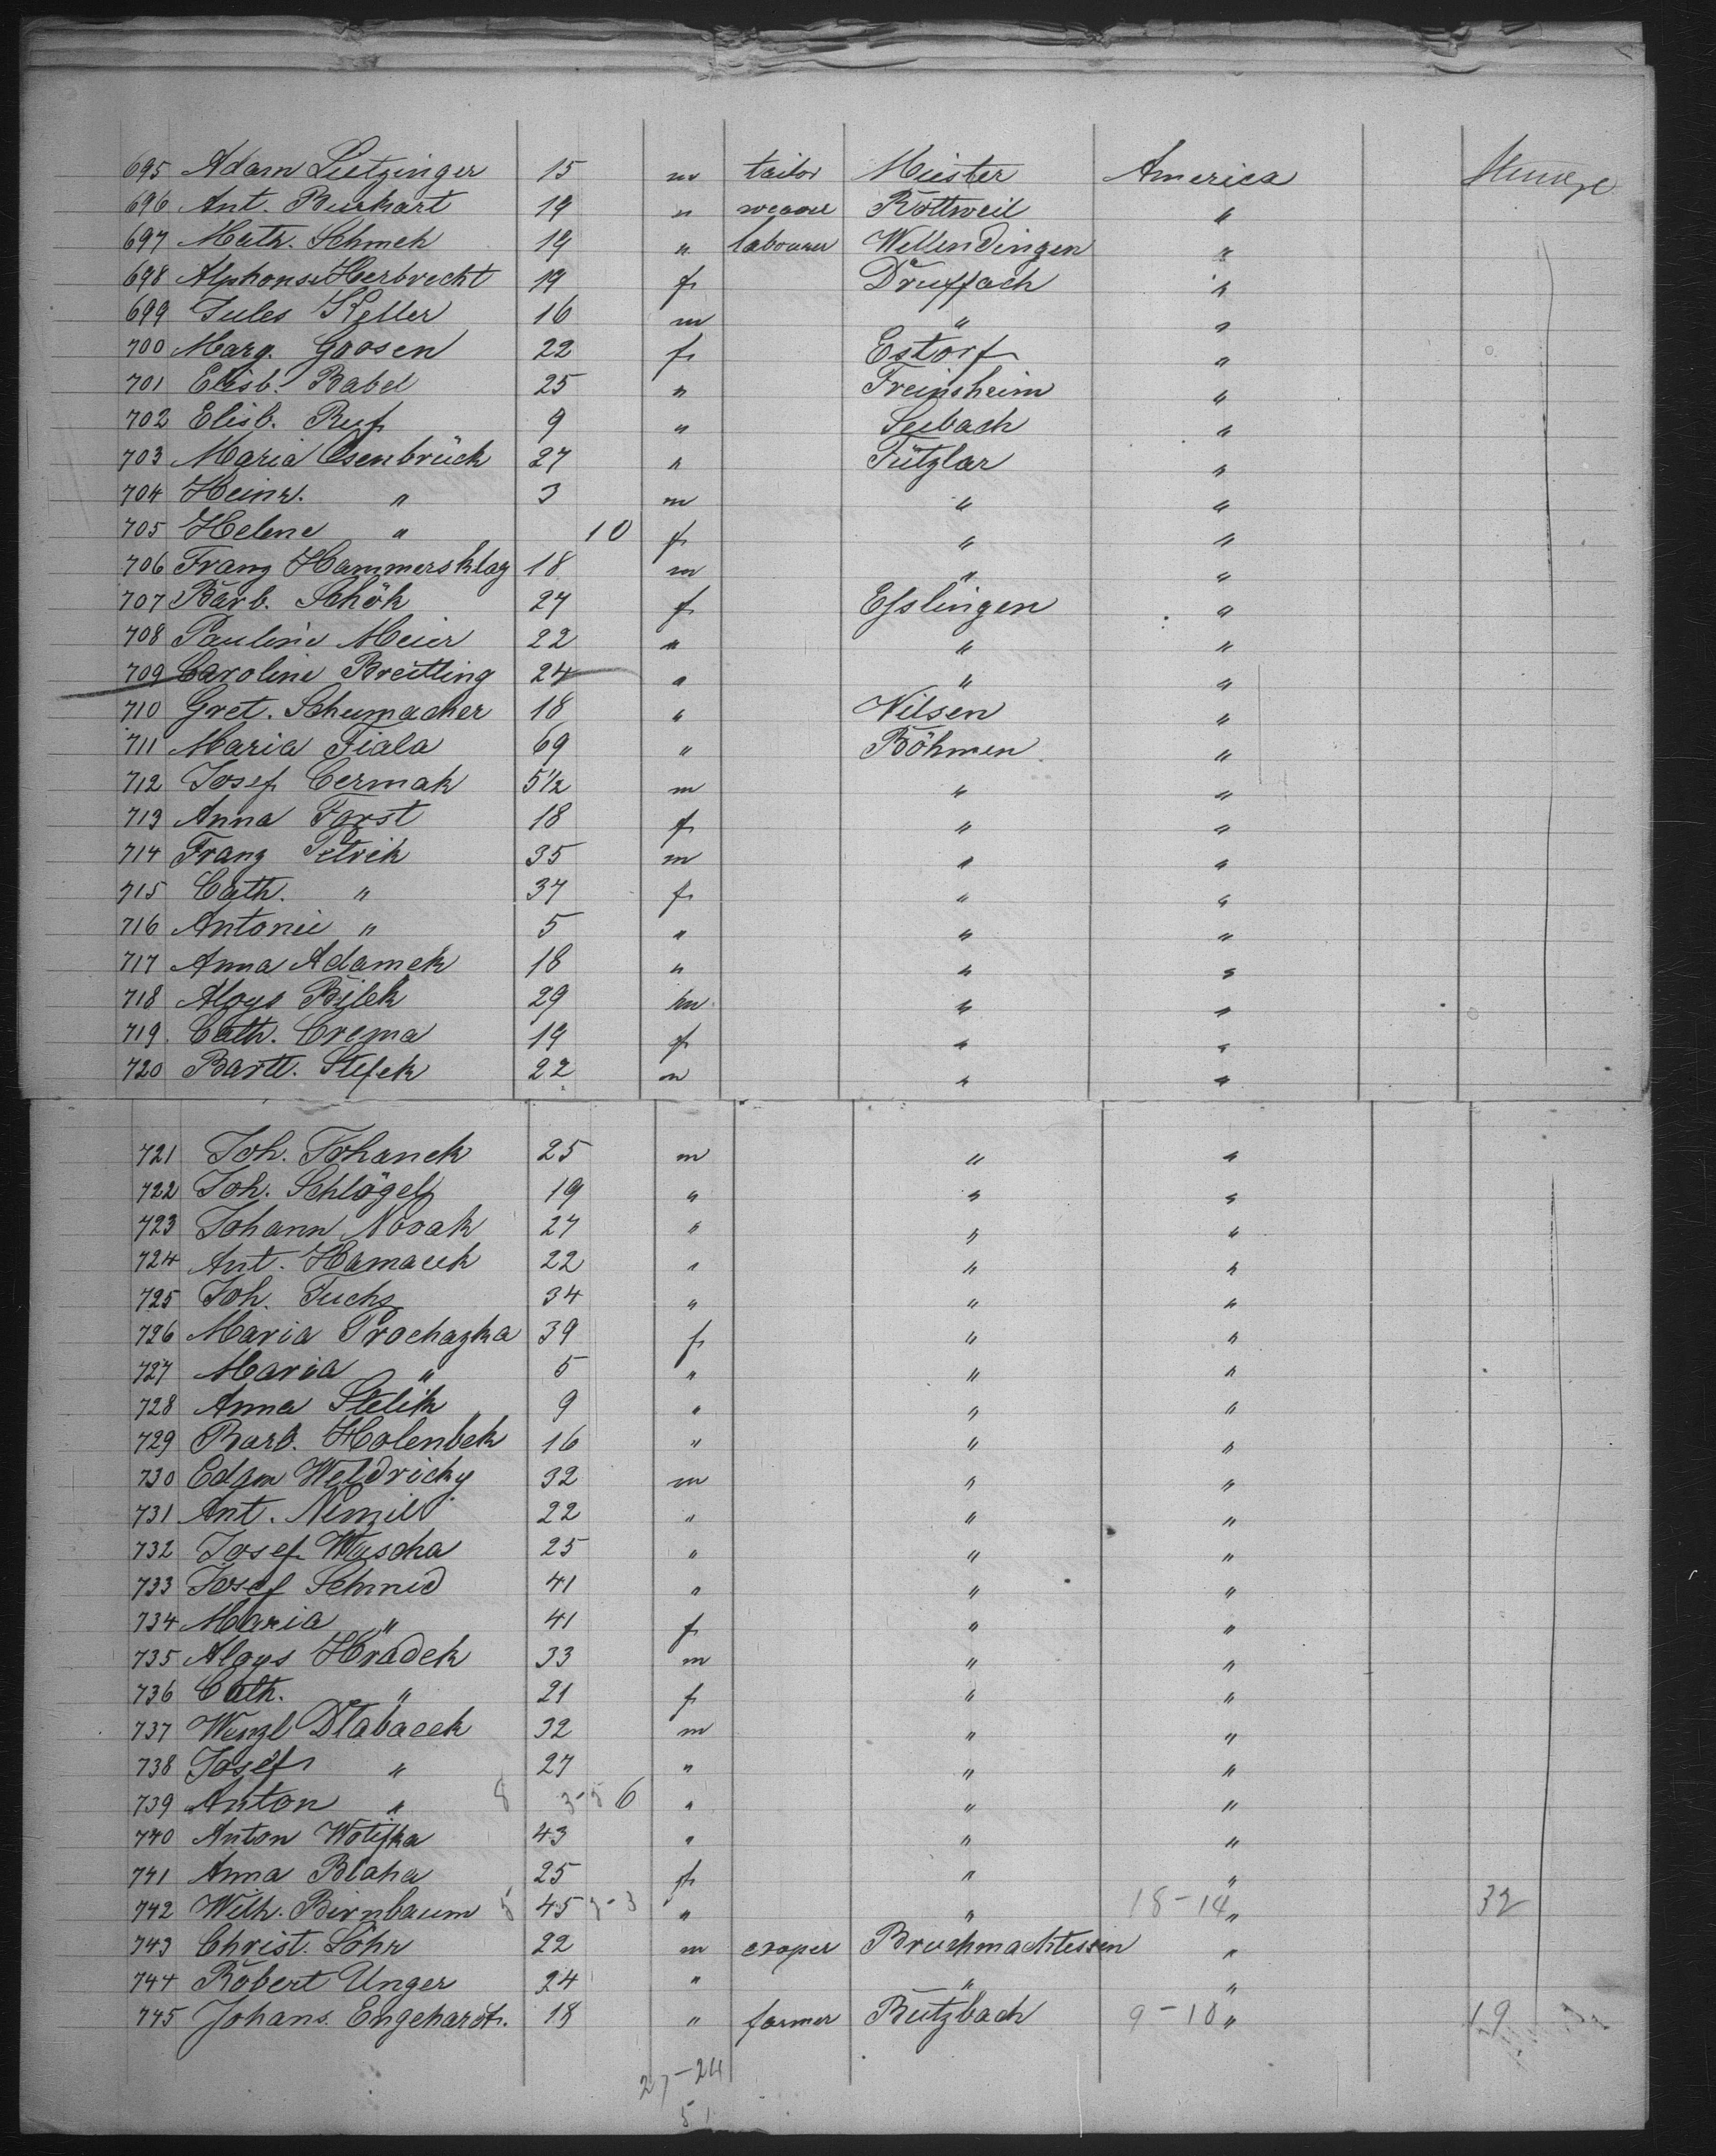 695 Adam Lutzinger 15 m tailor Meister America
696 Ant. Burkart 19 " weaver Rottweil "
697 Math. Schmeh 19 " labourer Wellendingen "
698 Alphonse Herbrecht 19 f Druffach "
699 Jules Keller 16 m " "
700 Marg. Goosen 22 f Estorf "
701 Elisb. Babel 25 " Freinsheim "
702 Elisb. Ruf 9 " Seebach "
703 Maria Osenbrück 27 " Fützlar "
704 Heinr. " 3 m " "
705 Helene " 10 f " "
706 Franz Hammersklag 18 m " "
707 Barb. Schök 27 f Esslingen "
708 Pauline Meier 22 " " "
709 Caroline Breitling 24 " " "
710 Gret. Schumacher 18 " Nilsen "
711 Maria Fiala 69 " Böhmen "
712 Josef Cermak 5½ m " "
713 Anna Forst 18 f " "
714 Franz Petrik 35 m " "
715 Cath. " 37 f " "
716 Antonie " 5 " " "
717 Anna Adamek 18 " " "
718 Aloys Bilek 29 m " "
719 Cath. Crema 19 f " "
720 Bartl. Stefek 22 m " "
721 Joh. Johanek 25 m " "
722 Joh. Schlögel 19 " " "
723 Johann Novak 27 " " "
724 Ant. Hamacek 22 " " "
725 Joh. Fuchs 34 " " "
726 Maria Prochazka 39 f " "
727 Maria " 5 " " "
728 Anna Stelik 9 " " "
729 Barb. Holenbek 16 " " "
730 Edam Weldricky 32 m " "
731 Ant. Nemzil 22 " " "
732 Josef Wascha 25 " " "
733 Josef Schmid 41 " " "
734 Maria " 41 f " "
735 Aloys Hradek 33 m " "
736 Cath. " 21 f " "
737 Wenzl Dlabacek 32 m " "
738 Josef " 27 " " "
739 Anton " 8 3-5 6 " " "
740 Anton Wotifka 43 " " "
741 Anna Blaha 25 f " "
742 Wilh. Birnbaum 5 45 3-3 " " 18-14 " 32
743 Christ. Löhr 22 m Bruchmachtersen "
744 Robert Unger 24 " " "
745 Johans. Engehardt. 18 " farmer Butzbach 9-10 " 19
27-24
51